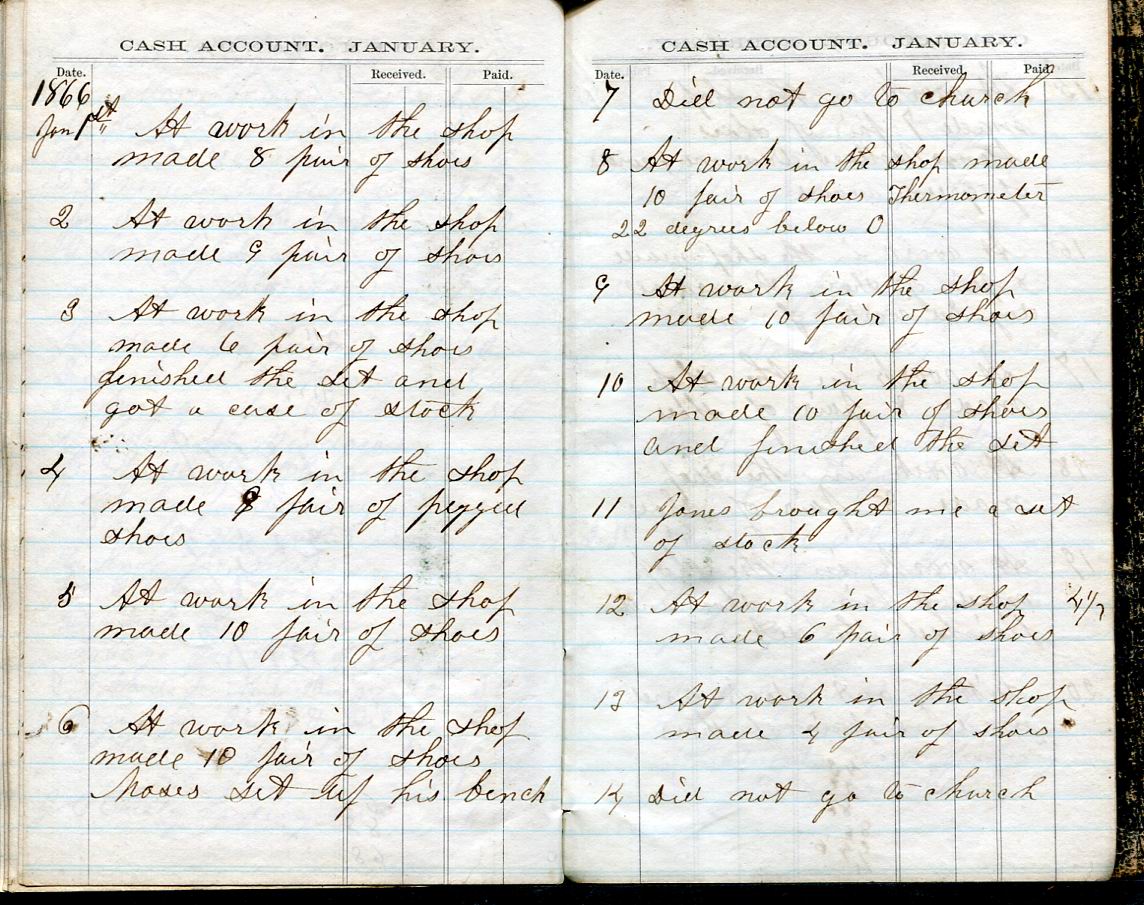 CASH ACCOUNT. JANUARY.
Date. Received. Paid.
1866
Jan 1st At work in the shop
made 8 pair of shois
2 At work in the shop
made 9 pair of shois
3 At work in the shop
made 6 pair of shois
finished the set and
got a case of stock
4 At work in the shop
made 8 pair of pegged
shois
5 At work in the shop
made 10 pair of shois
6 At work in the shop
made 10 pair of shois
Moses set up his bench
CASH ACCOUNT. JANUARY.
Date. Received. Paid.
7 Did not go to church
8 At work in the shop made
10 pair of shois Thermometer
22 degrees below 0
9 At work in the shop
made 10 pair of shois
10 At work in the shop
made 10 pair of shois
and finished the set
11 Jones brought me a set
of stock
12 At work in the shop
made 6 pair of shois
13 At work in the shop
made 4 pair of shois
14 Did not go to church